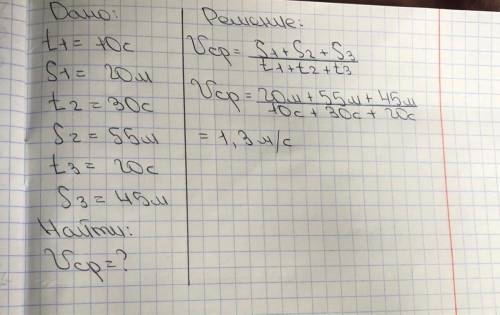 Дано:
t1 = 10с
S1 = 20м
t2 = 30с
S2 = 55м
t3 = 20с
S3 = 45м
Найти:
Vср = ?
Решение:
Vср = S1 + S2 + S3 / t1 + t2 + t3
Vср = 20м + 55м + 45м / 10с + 30с + 20с
= 1,3 м/с